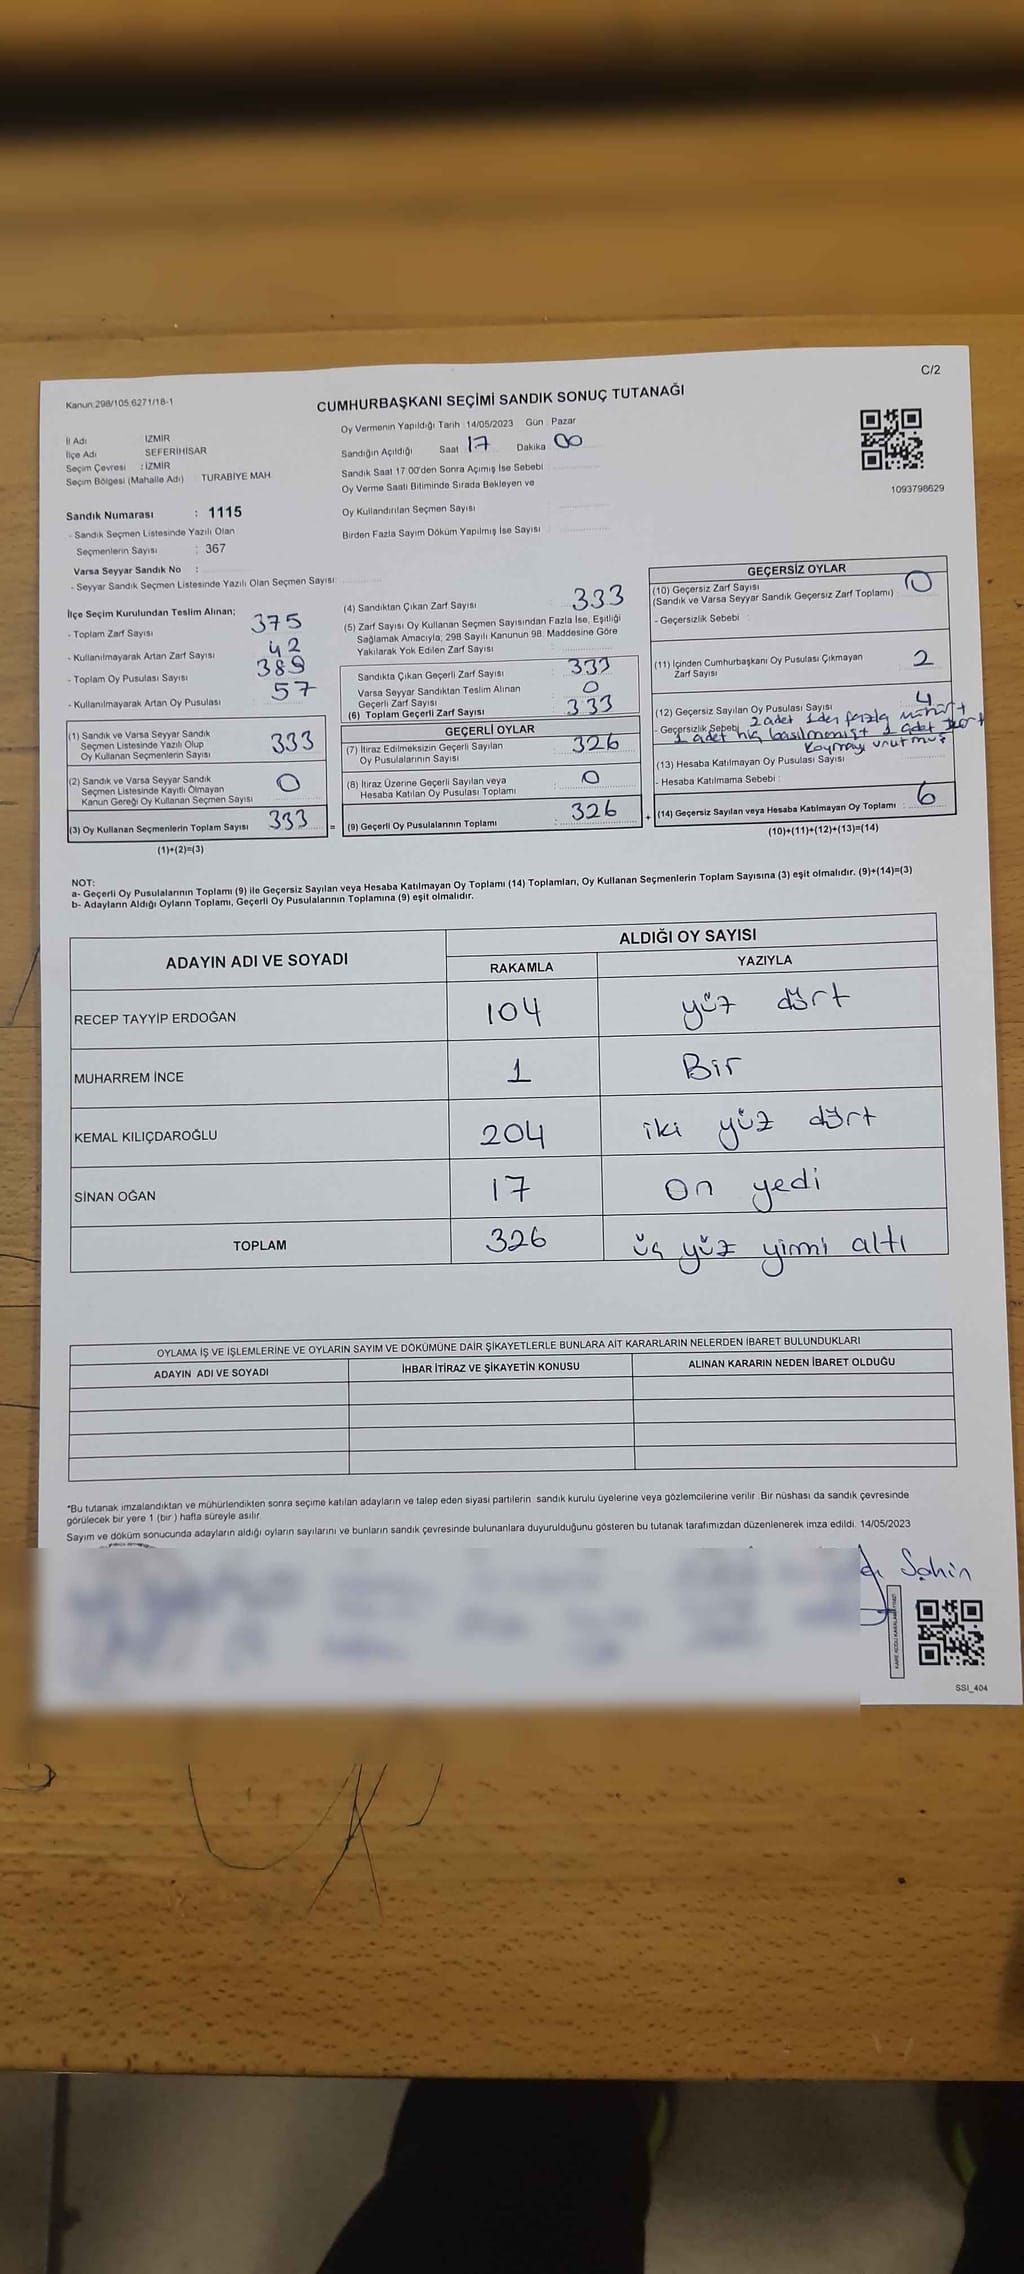 C/2
Kanun 298/105 6271/18-1
CUMHURBAŞKANI SEÇİMİ SANDIK SONUÇ TUTANAĞI
İl Adı İZMİR
İlçe Adı SEFERİHİSAR
Seçim Çevresi : İZMİR
Seçim Bölgesi (Mahalle Adı) : TURABİYE MAH
Oy Vermenin Yapıldığı Tarih 14/05/2023 Gün Pazar
Sandığın Açıldığı Saat 17 Dakika 00
Sandık Saat 17:00'den Sonra Açımış İse Sebebi
Oy Verme Saati Bitiminde Sırada Bekleyen ve
Oy Kullandırılan Seçmen Sayısı
Birden Fazla Sayım Döküm Yapılmış İse Sayısı
1093798629
Sandık Numarası : 1115
- Sandık Seçmen Listesinde Yazılı Olan
Seçmenlerin Sayısı : 367
Varsa Seyyar Sandık No :
- Seyyar Sandık Seçmen Listesinde Yazılı Olan Seçmen Sayısı:
İlçe Seçim Kurulundan Teslim Alınan;
- Toplam Zarf Sayısı 375
- Kullanılmayarak Artan Zarf Sayısı 42
- Toplam Oy Pusulası Sayısı 389
- Kullanılmayarak Artan Oy Pusulası 57
(1) Sandık ve Varsa Seyyar Sandık
Seçmen Listesinde Yazılı Olup
Oy Kullanan Seçmenlerin Sayısı 333
(2) Sandık ve Varsa Seyyar Sandık
Seçmen Listesinde Kayıtlı Olmayan
Kanun Gereği Oy Kullanan Seçmen Sayısı 0
(3) Oy Kullanan Seçmenlerin Toplam Sayısı 333 =
(1)+(2)=(3)
(4) Sandıktan Çıkan Zarf Sayısı 333
(5) Zarf Sayısı Oy Kullanan Seçmen Sayısından Fazla İse, Eşitliği
Sağlamak Amacıyla; 298 Sayılı Kanunun 98. Maddesine Göre
Yakılarak Yok Edilen Zarf Sayısı
Sandıkta Çıkan Geçerli Zarf Sayısı 333
Varsa Seyyar Sandıktan Teslim Alınan
Geçerli Zarf Sayısı 0
(6) Toplam Geçerli Zarf Sayısı 333
GEÇERLİ OYLAR
(7) İtiraz Edilmeksizin Geçerli Sayılan
Oy Pusulalarının Sayısı 326
(8) İtiraz Üzerine Geçerli Sayılan veya
Hesaba Katılan Oy Pusulası Toplamı 0
(9) Geçerli Oy Pusulalarının Toplamı : 326 +
GEÇERSİZ OYLAR
(10) Geçersiz Zarf Sayısı
(Sandık ve Varsa Seyyar Sandık Geçersiz Zarf Toplamı) 0
- Geçersizlik Sebebi :
(11) İçinden Cumhurbaşkanı Oy Pusulası Çıkmayan
Zarf Sayısı 2
(12) Geçersiz Sayılan Oy Pusulası Sayısı 4
- Geçersizlik Sebebi 2 adet 1den fazla mühürt
1 adet hiç basılmamışt 1 adet
koymayı unutmuş
(13) Hesaba Katılmayan Oy Pusulası Sayısı
- Hesaba Katılmama Sebebi :
(14) Geçersiz Sayılan veya Hesaba Katılmayan Oy Toplamı : 6
(10)+(11)+(12)+(13)=(14)
NOT:
a- Geçerli Oy Pusulalarının Toplamı (9) ile Geçersiz Sayılan veya Hesaba Katılmayan Oy Toplamı (14) Toplamları, Oy Kullanan Seçmenlerin Toplam Sayısına (3) eşit olmalıdır. (9)+(14)=(3)
b- Adayların Aldığı Oyların Toplamı, Geçerli Oy Pusulalarının Toplamına (9) eşit olmalıdır.
ADAYIN ADI VE SOYADI ALDIĞI OY SAYISI
RAKAMLA YAZIYLA
RECEP TAYYİP ERDOĞAN 104 yüz dört
MUHARREM İNCE 1 Bir
KEMAL KILIÇDAROĞLU 204 iki yüz dört
SİNAN OĞAN 17 on yedi
TOPLAM 326 üç yüz yirmi altı
OYLAMA İŞ VE İŞLEMLERİNE VE OYLARIN SAYIM VE DÖKÜMÜNE DAİR ŞİKAYETLERLE BUNLARA AİT KARARLARIN NELERDEN İBARET BULUNDUKLARI
ADAYIN ADI VE SOYADI İHBAR İTİRAZ VE ŞİKAYETİN KONUSU ALINAN KARARIN NEDEN İBARET OLDUĞU
*Bu tutanak imzalandıktan ve mühürlendikten sonra seçime katılan adayların ve talep eden siyasi partilerin sandık kurulu üyelerine veya gözlemcilerine verilir. Bir nüshası da sandık çevresinde
görülecek bir yere 1 (bir ) hafta süreyle asılır.
Sayım ve döküm sonucunda adayların aldığı oyların sayılarını ve bunların sandık çevresinde bulunanlara duyurulduğunu gösteren bu tutanak tarafımızdan düzenlenerek imza edildi. 14/05/2023
Şahin
SSI_404